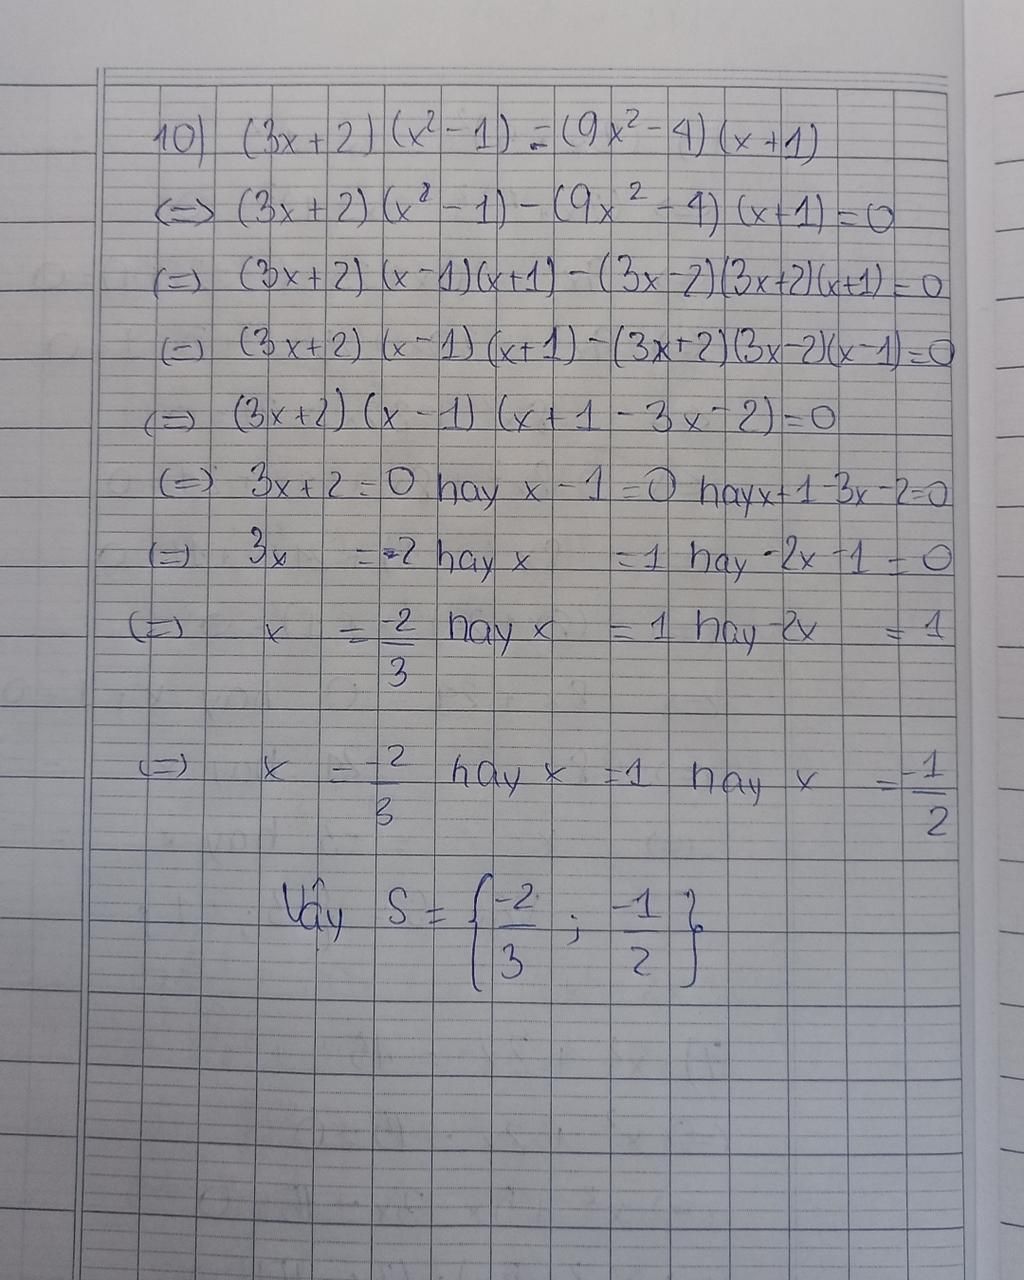 10) (3x+2)(x²-1)=(9x²-4)(x+1)
(=) (3x+2)(x²-1)-(9x²-4)(x+1)=0
(=) (3x+2)(x-1)(x+1)-(3x-2)(3x+2)(x+1)=0
(=) (3x+2)(x-1)(x+1)-(3x+2)(3x-2)(x-1)=0
(=) (3x+2)(x-1)(x+1-3x-2)=0
(=) 3x+2=0 hay x-1=0 hay x+1-3x-2=0
(=) 3x =-2 hay x =1 hay -2x-1=0
(=) x = -2/3 hay x =1 hay -2x = 1
(=) x = -2/3 hay x =1 hay x = -1/2
Vậy S={-2/3 ; -1/2}